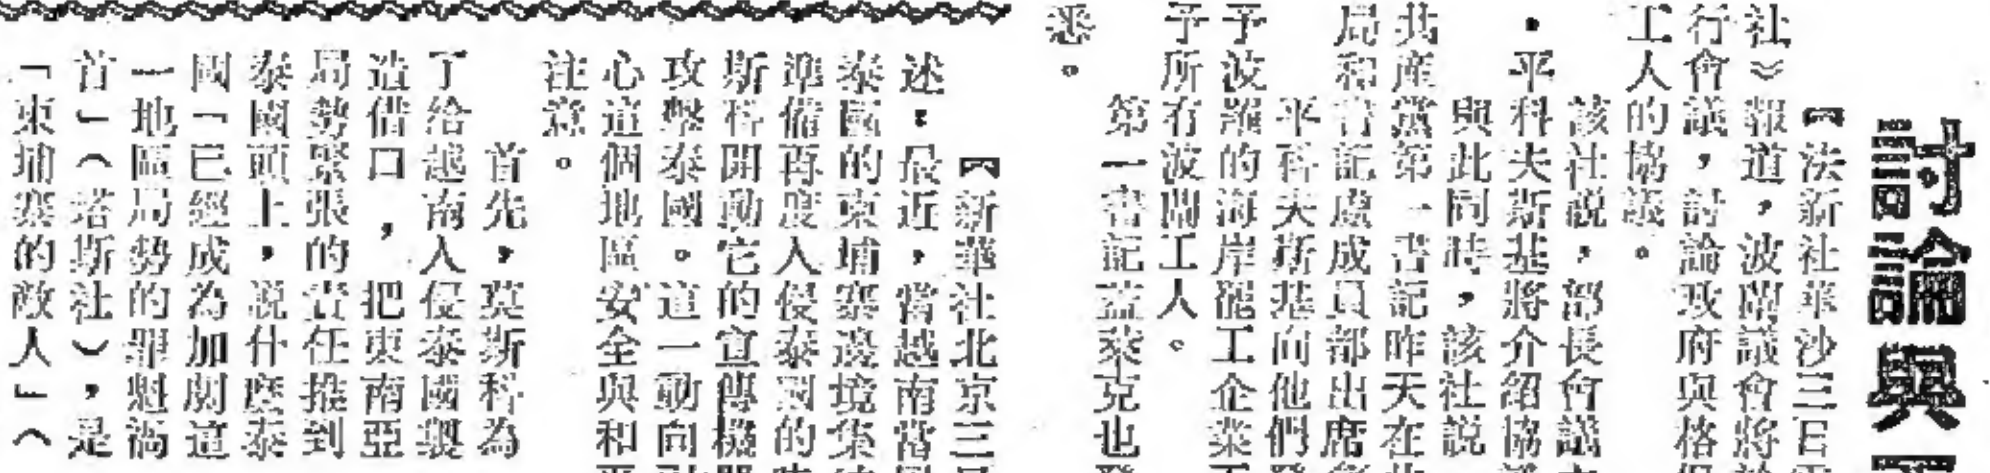 討論與
【法新社華沙三日
社》報道，波蘭議會將
行會議，討論政府與格
工人的協議。
該社説，部長會議
·平科夫斯基將介紹協
與此同時，該社説
共產黨第一書記昨天在
局和書記處成員部出席
平科夫斯基向他們
予波羅的海岸罷工企業
予所有波蘭工人。
第一書記蓋萊克也
悉。
【新華社北京三
述：最近，當越南當
泰國的柬埔寨邊境集
準備再度入侵泰國的
斯科開動它的宣傳機
攻擊泰國。這一動向
心這個地區安全與和
注意。
首先，莫斯科為
了給越南入侵泰國製
造借口，把東南亞
局勢緊張的責任推到
泰國頭上，説什麽泰
國「已經成為加劇這
一地區局勢的罪魁禍
首」（塔斯社），是
「柬埔寨的敵人」（